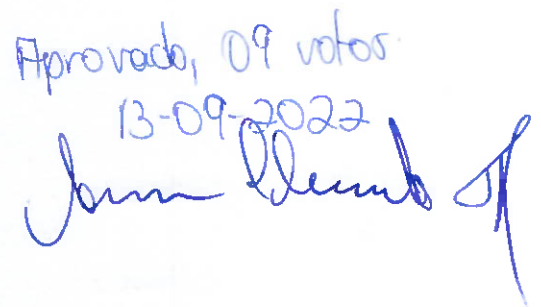 Aprovado, 09 votos.
13-09-2022